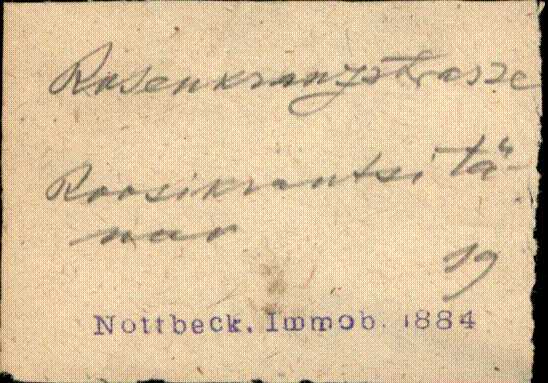 Rosenkranzstrasse
Roosikrantsi tä-
nav
19
Nottbeck. Immob. 1884